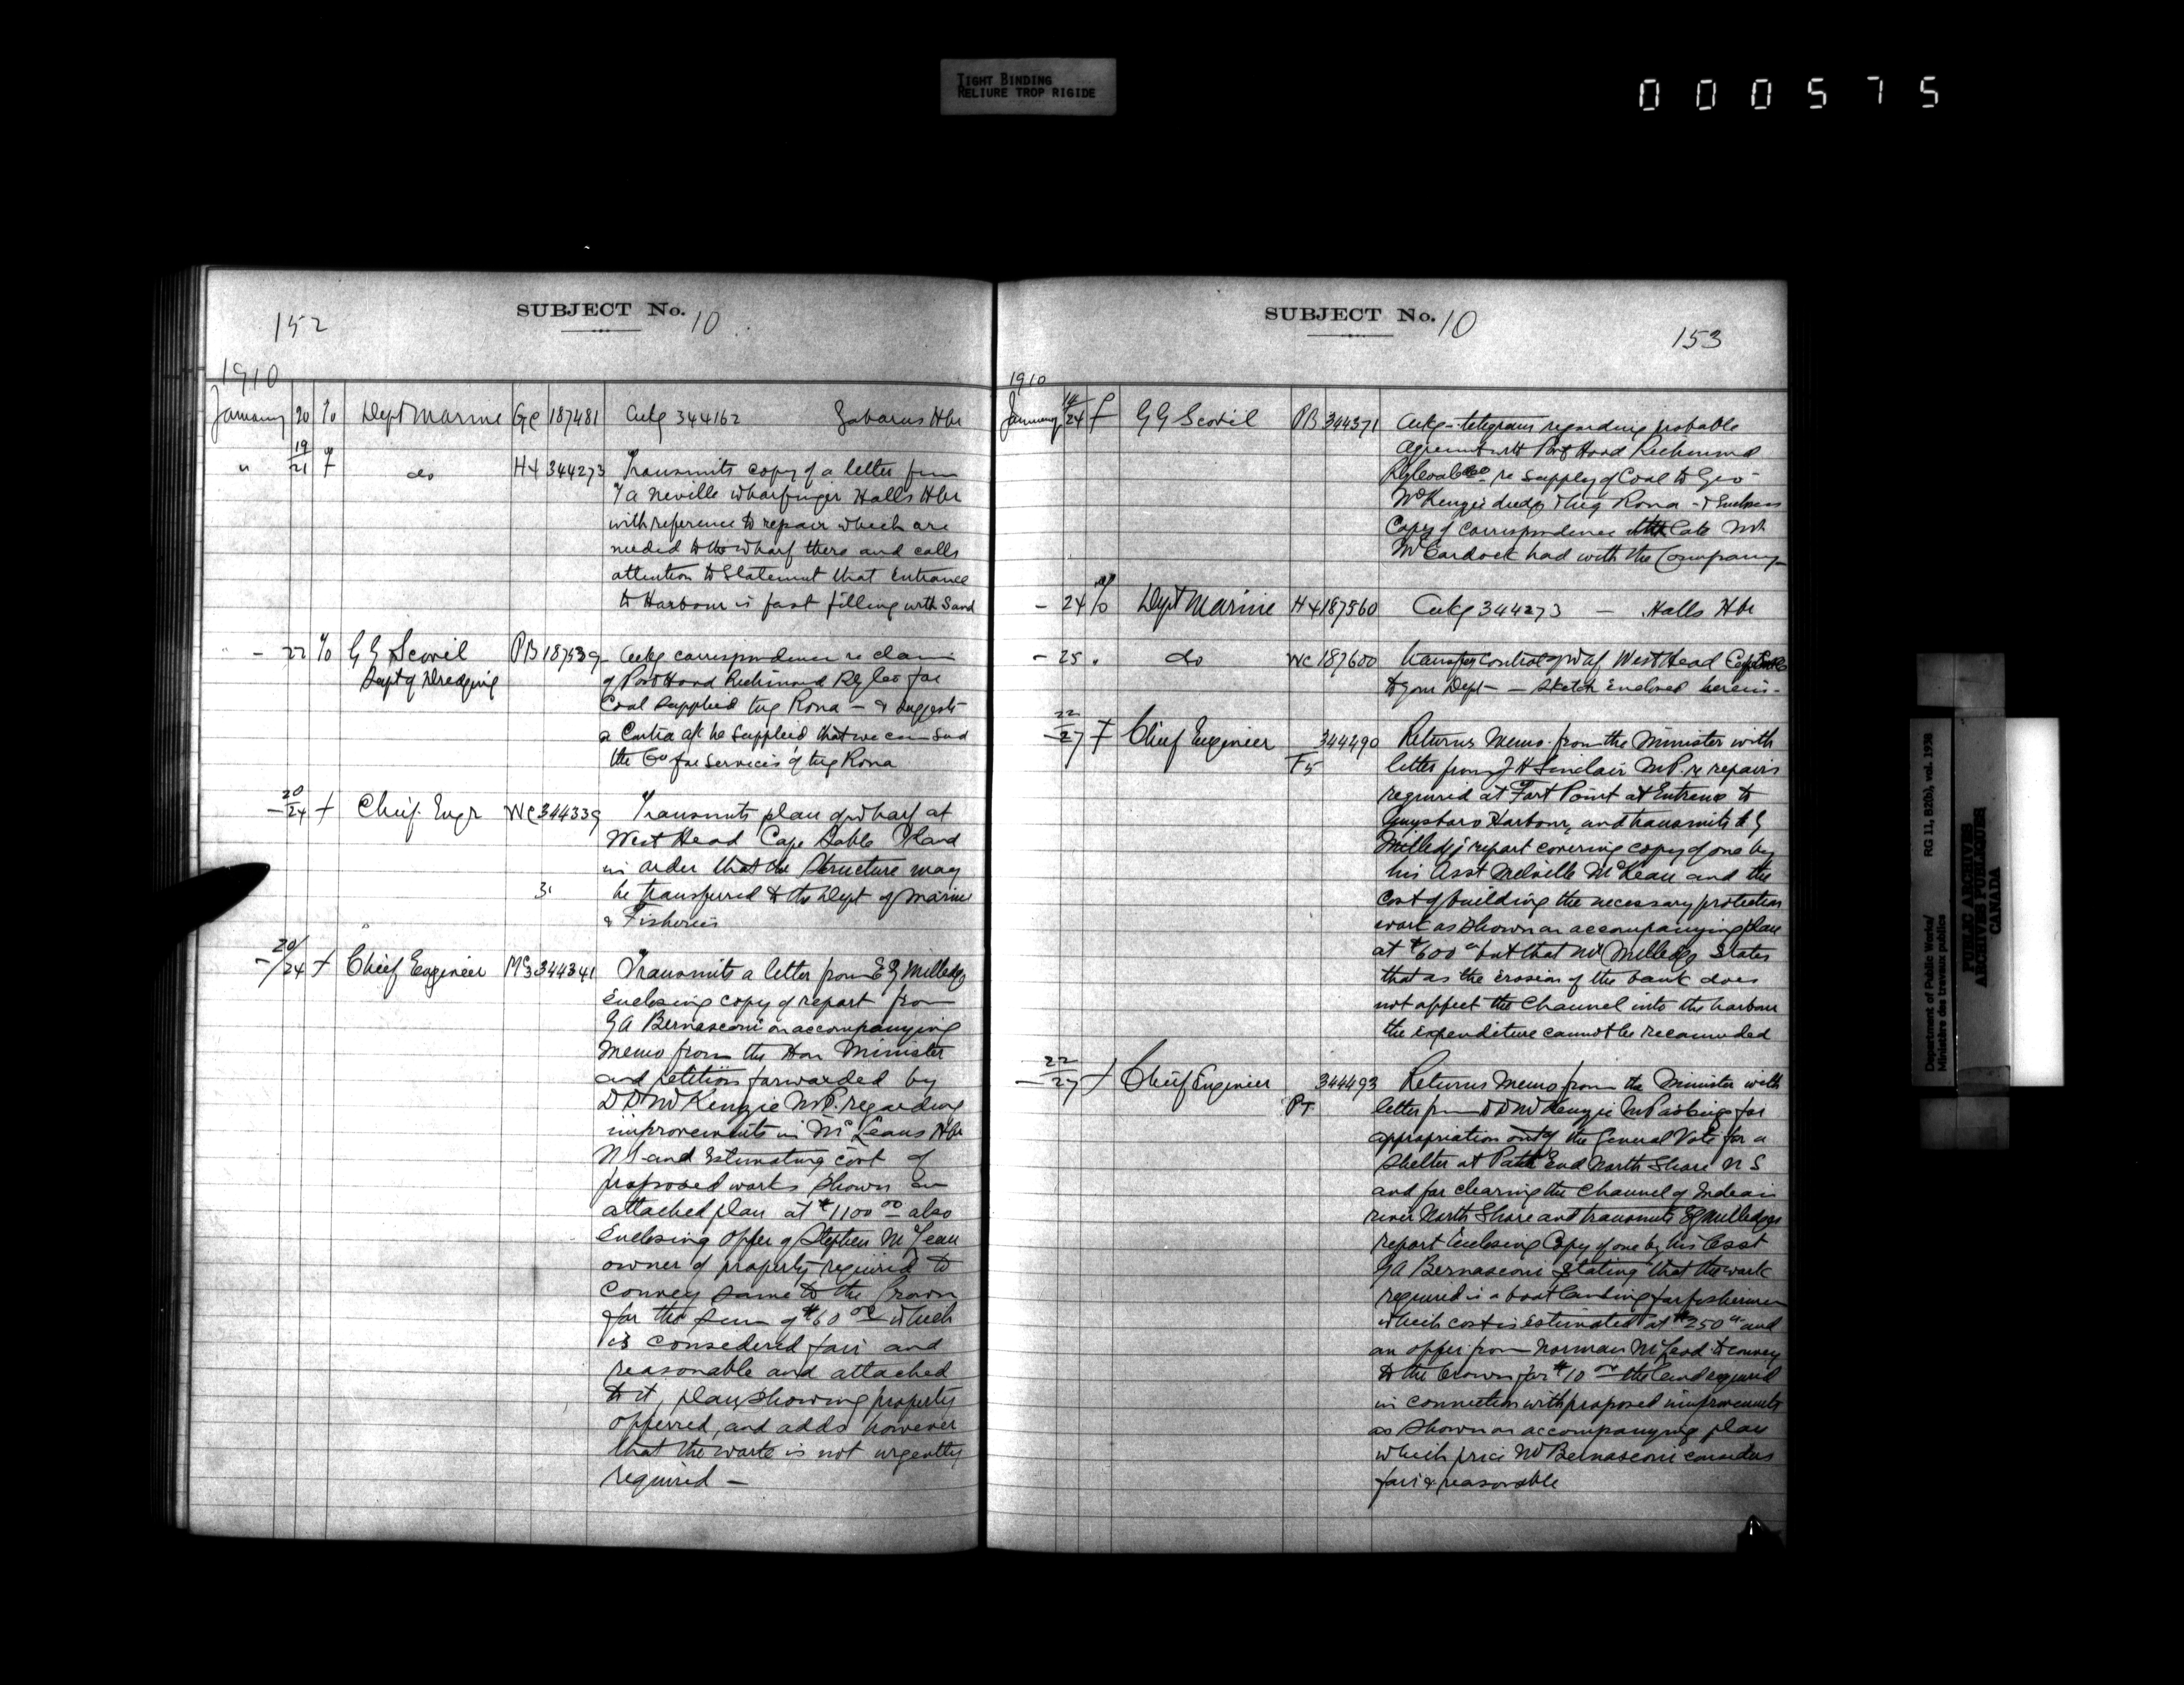 TIGHT BINDING
RELIURE TROP RIGIDE
000575
152
SUBJECT No. 10
1910
January 20 T/o Dept Marine Ge 187481 Ackg 344162 Gabarus Hbr
" 19/21 f do H4 344273 Transmits copy of a letter from
J A Neville wharfinger Halls Hbr
with reference to repair which are
needed to the wharf there and calls
attention to statement that entrance
to Harbour is fast filling with sand
- 22 T/o G G Scovil PB 187539 Ackg correspondence re claim
Supt of Dredging of Port Hood Richmond Ry Co for
Coal supplied tug Rona - & suggests
a Contra a/c be supplied that we can send
the Co for services of tug Rona
- 20/24 f Chief Engr WC 344339 Transmits plan of wharf at
West Head Cape Sable Island
in order that the Structure may
be transferred to the Dept of Marine
& Fisheries
- 20/24 f Chief Engineer Mc3 344341 Transmits a letter from E G Milledge
enclosing copy of report from
G A Bernasconi on accompanying
Memo from the Hon Minister
and petition forwarded by
D D McKenzie M.P. regarding
improvements in McLeans Hbr
N S and Estimating cost of
proposed works shown on
attached plan at $1100 00 also
enclosing offer of Stephen McLean
owner of property required to
convey same to the Crown
for the sum of $60 00 which
is considered fair and
reasonable and attached
to it, plan showing property
offerred, and adds however
that the work is not urgently
required -
SUBJECT No. 10
153
1910
January 24 f G G Scovil PB 344371 Ackg telegram regarding probable
agreement with Port Hood Richmond
Ry Coal Co re supply of Coal to Geo
McKenzie dredge & tug Rona - & Encloses
Copy of correspondence late Mr
McCardock had with the Company -
- 24 T/o Dept Marine H4 187560 Ackg 344273 - Halls Hbr
- 25 " do WC 187600 transfer control of Wf West Head Cape Sable
to your Dept - - sketch enclosed herein -
- 22/27 f Chief Engineer 344490 Returns Memo from the Minister with
F5 letter from J H Sinclair M.P. re repairs
required at Fort Point at Entrance to
Guysboro Harbour, and transmits E G
Milledge report covering copy of one by
his Asst Melville McKean and the
cost of building the necessary protection
work as shown on accompanying plan
at $600 but that Mr Milledge States
that as the erosion of the bank does
not affect the channel into the harbour
the expenditure cannot be recommended
- 22/27 f Chief Engineer 344493 Returns Memo from the Minister with
PT letter from D D McKenzie M P asking for
appropriation out of the General Vote for a
shelter at Path End North Shore N S
and for clearing the channel of Indian
river North Shore and transmits E G Milledges
report enclosing Copy of one by his Asst
G A Bernasconi stating that the work
required is a boat landing for fishermen
which cost is estimated at $250 and
an offer from Norman McLeod to convey
to the Crown for $10 00 the land required
in connection with proposed improvements
as shown on accompanying plan
which price Mr Bernasconi considers
fair & reasonable
Department of Public Works/ RG 11, B2(b), vol. 1938
Ministère des travaux publics
PUBLIC ARCHIVES
ARCHIVES PUBLIQUES
CANADA